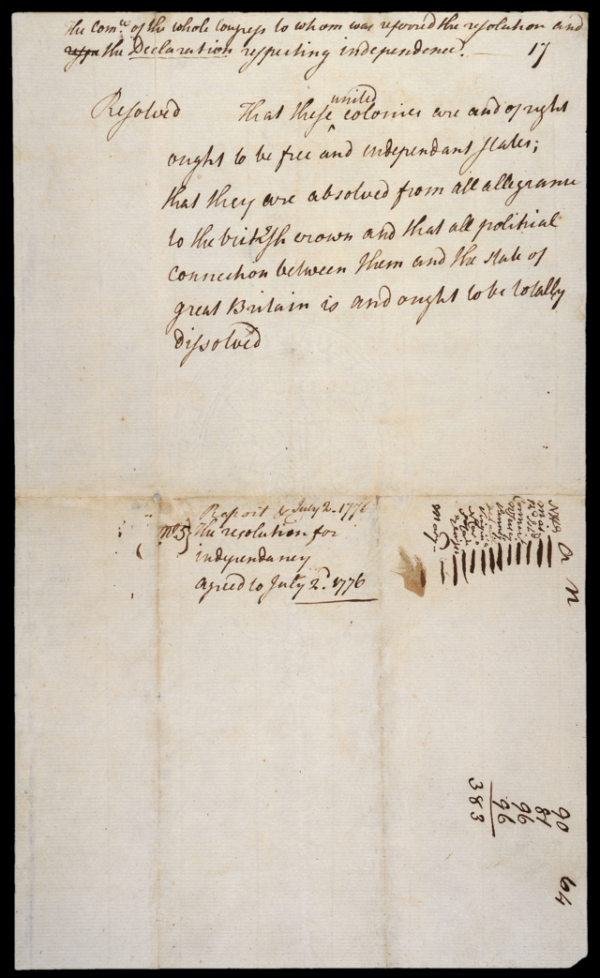 The Com.ee of the whole Congress to whom was referred the resolution and
the Declaration respecting independence.
17
Resolved That these united colonies are and of right
ought to be free and independant states;
that they are absolved from all allegiance
to the british crown and that all political
connection between them and the state of
great Britain is and ought to be totally
dissolved
Report July 2. 1776
No. 5} the resolution for
independancy
agreed to July 2d. 1776
a n
90
81
96
96
383
64